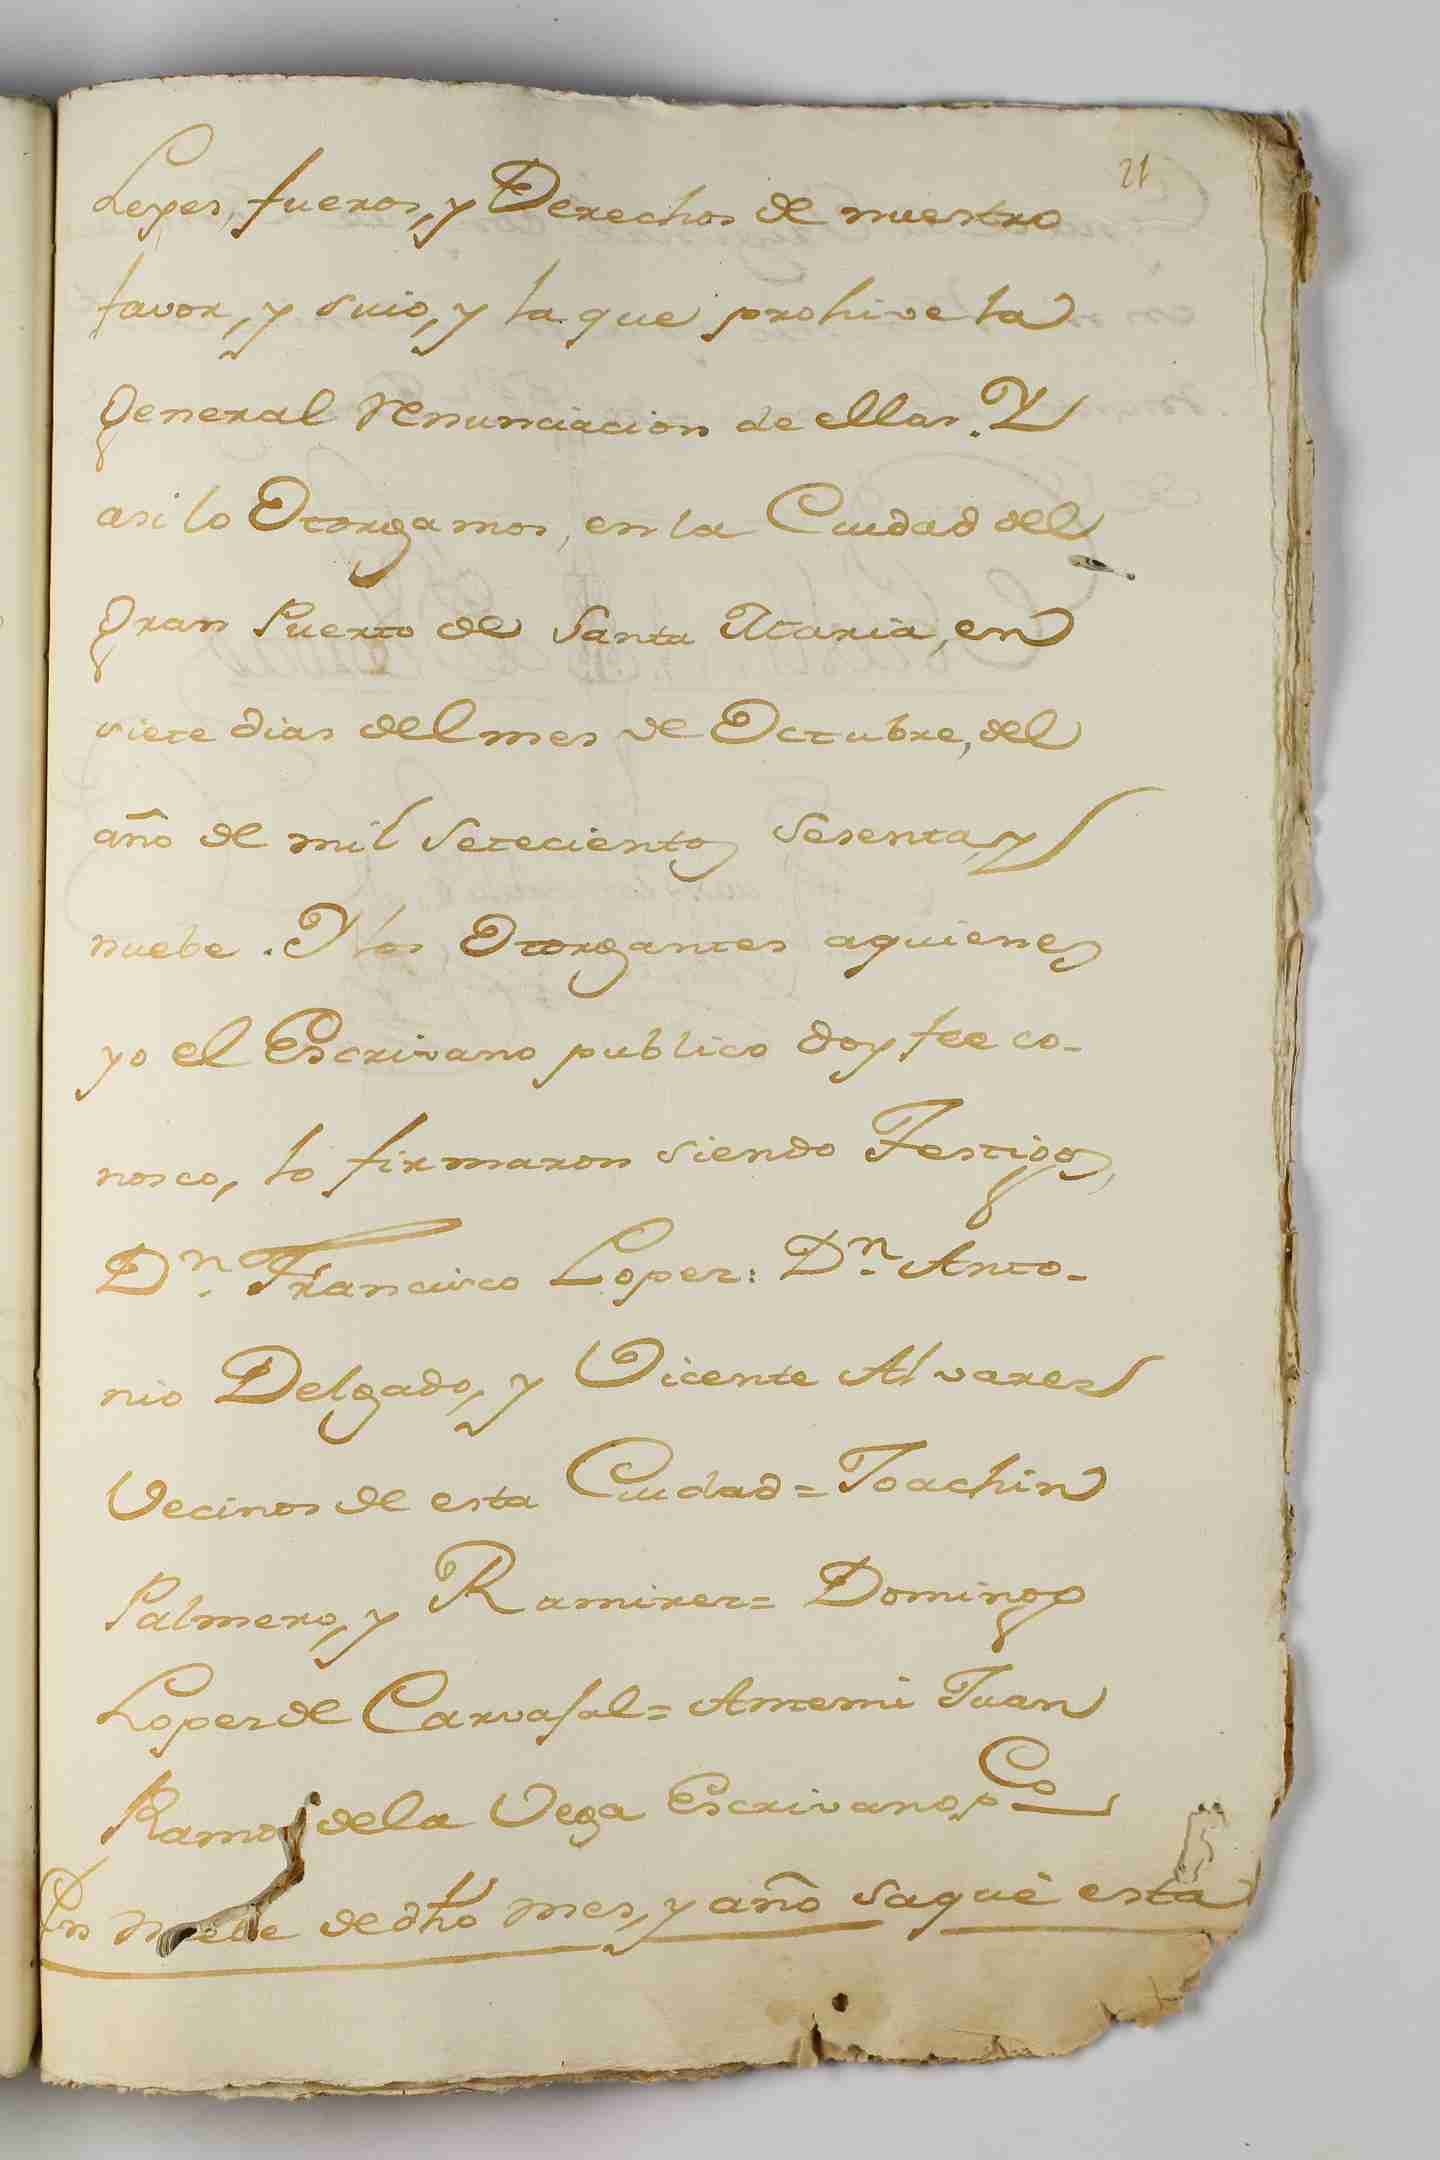 21
Leyes, fueros, y Derechos de nuestro
favor, y suio, y la que prohive la
General renunciacion de ellas. Y
asi lo Otorgamos, en la Ciudad del
Gran Puerto de Santa Maria, en
siete dias del mes de Octubre, del
año de mil setecientos sesenta, y
nuebe. Y los Otorgantes aquienes
yo el Escrivano publico doy fee co-
nosco, lo firmaron siendo Testigos,
Dn. Francisco Lopez: Dn. Anto-
nio Delgado, y Vicente Alvarez
Vecinos de esta Ciudad = Joachin
Palmero, y Ramirez = Domingo
Lopez de Carvajal = Antemi Juan
Ramos de la Vega Escrivano pco
En nuebe de dho mes, y año saquè esta